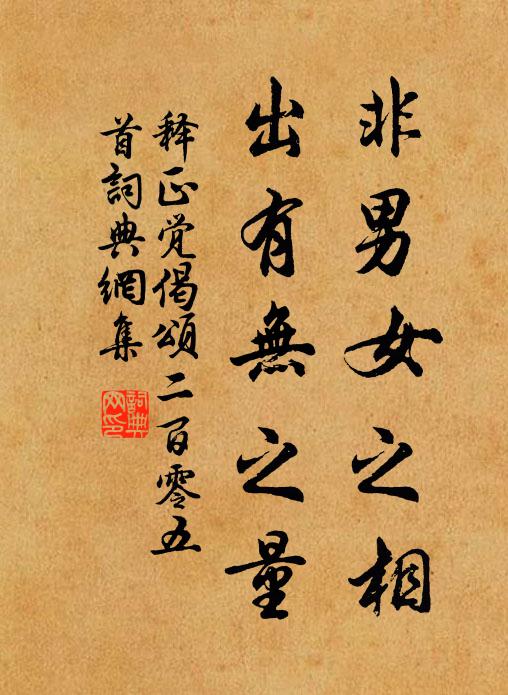 非男女之相
出有無之量
释正觉偈頌二百零五
首詞典網集
詞典
网印